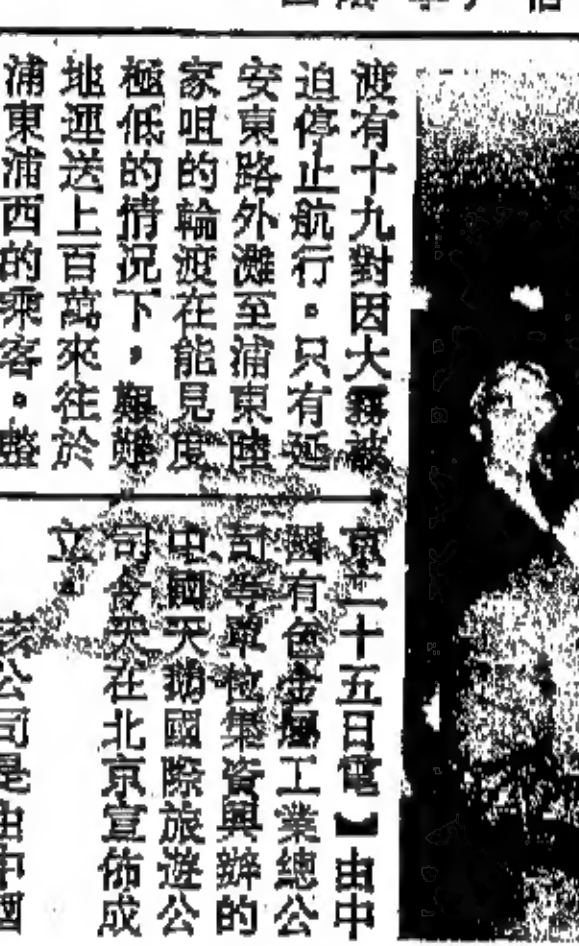 渡有十九對因大霧被
迫停止航行。只有延
安東路外灘至浦東陸
家咀的輪渡在能見度
極低的情況下，艱難
地運送上百萬來往於
浦東浦西的乘客。整
京二十五日電】由中
國有色金屬工業總公
司等單位集資興辦的
中國天鵝國際旅遊公
司今天在北京宣佈成
立。
該公司是由中國